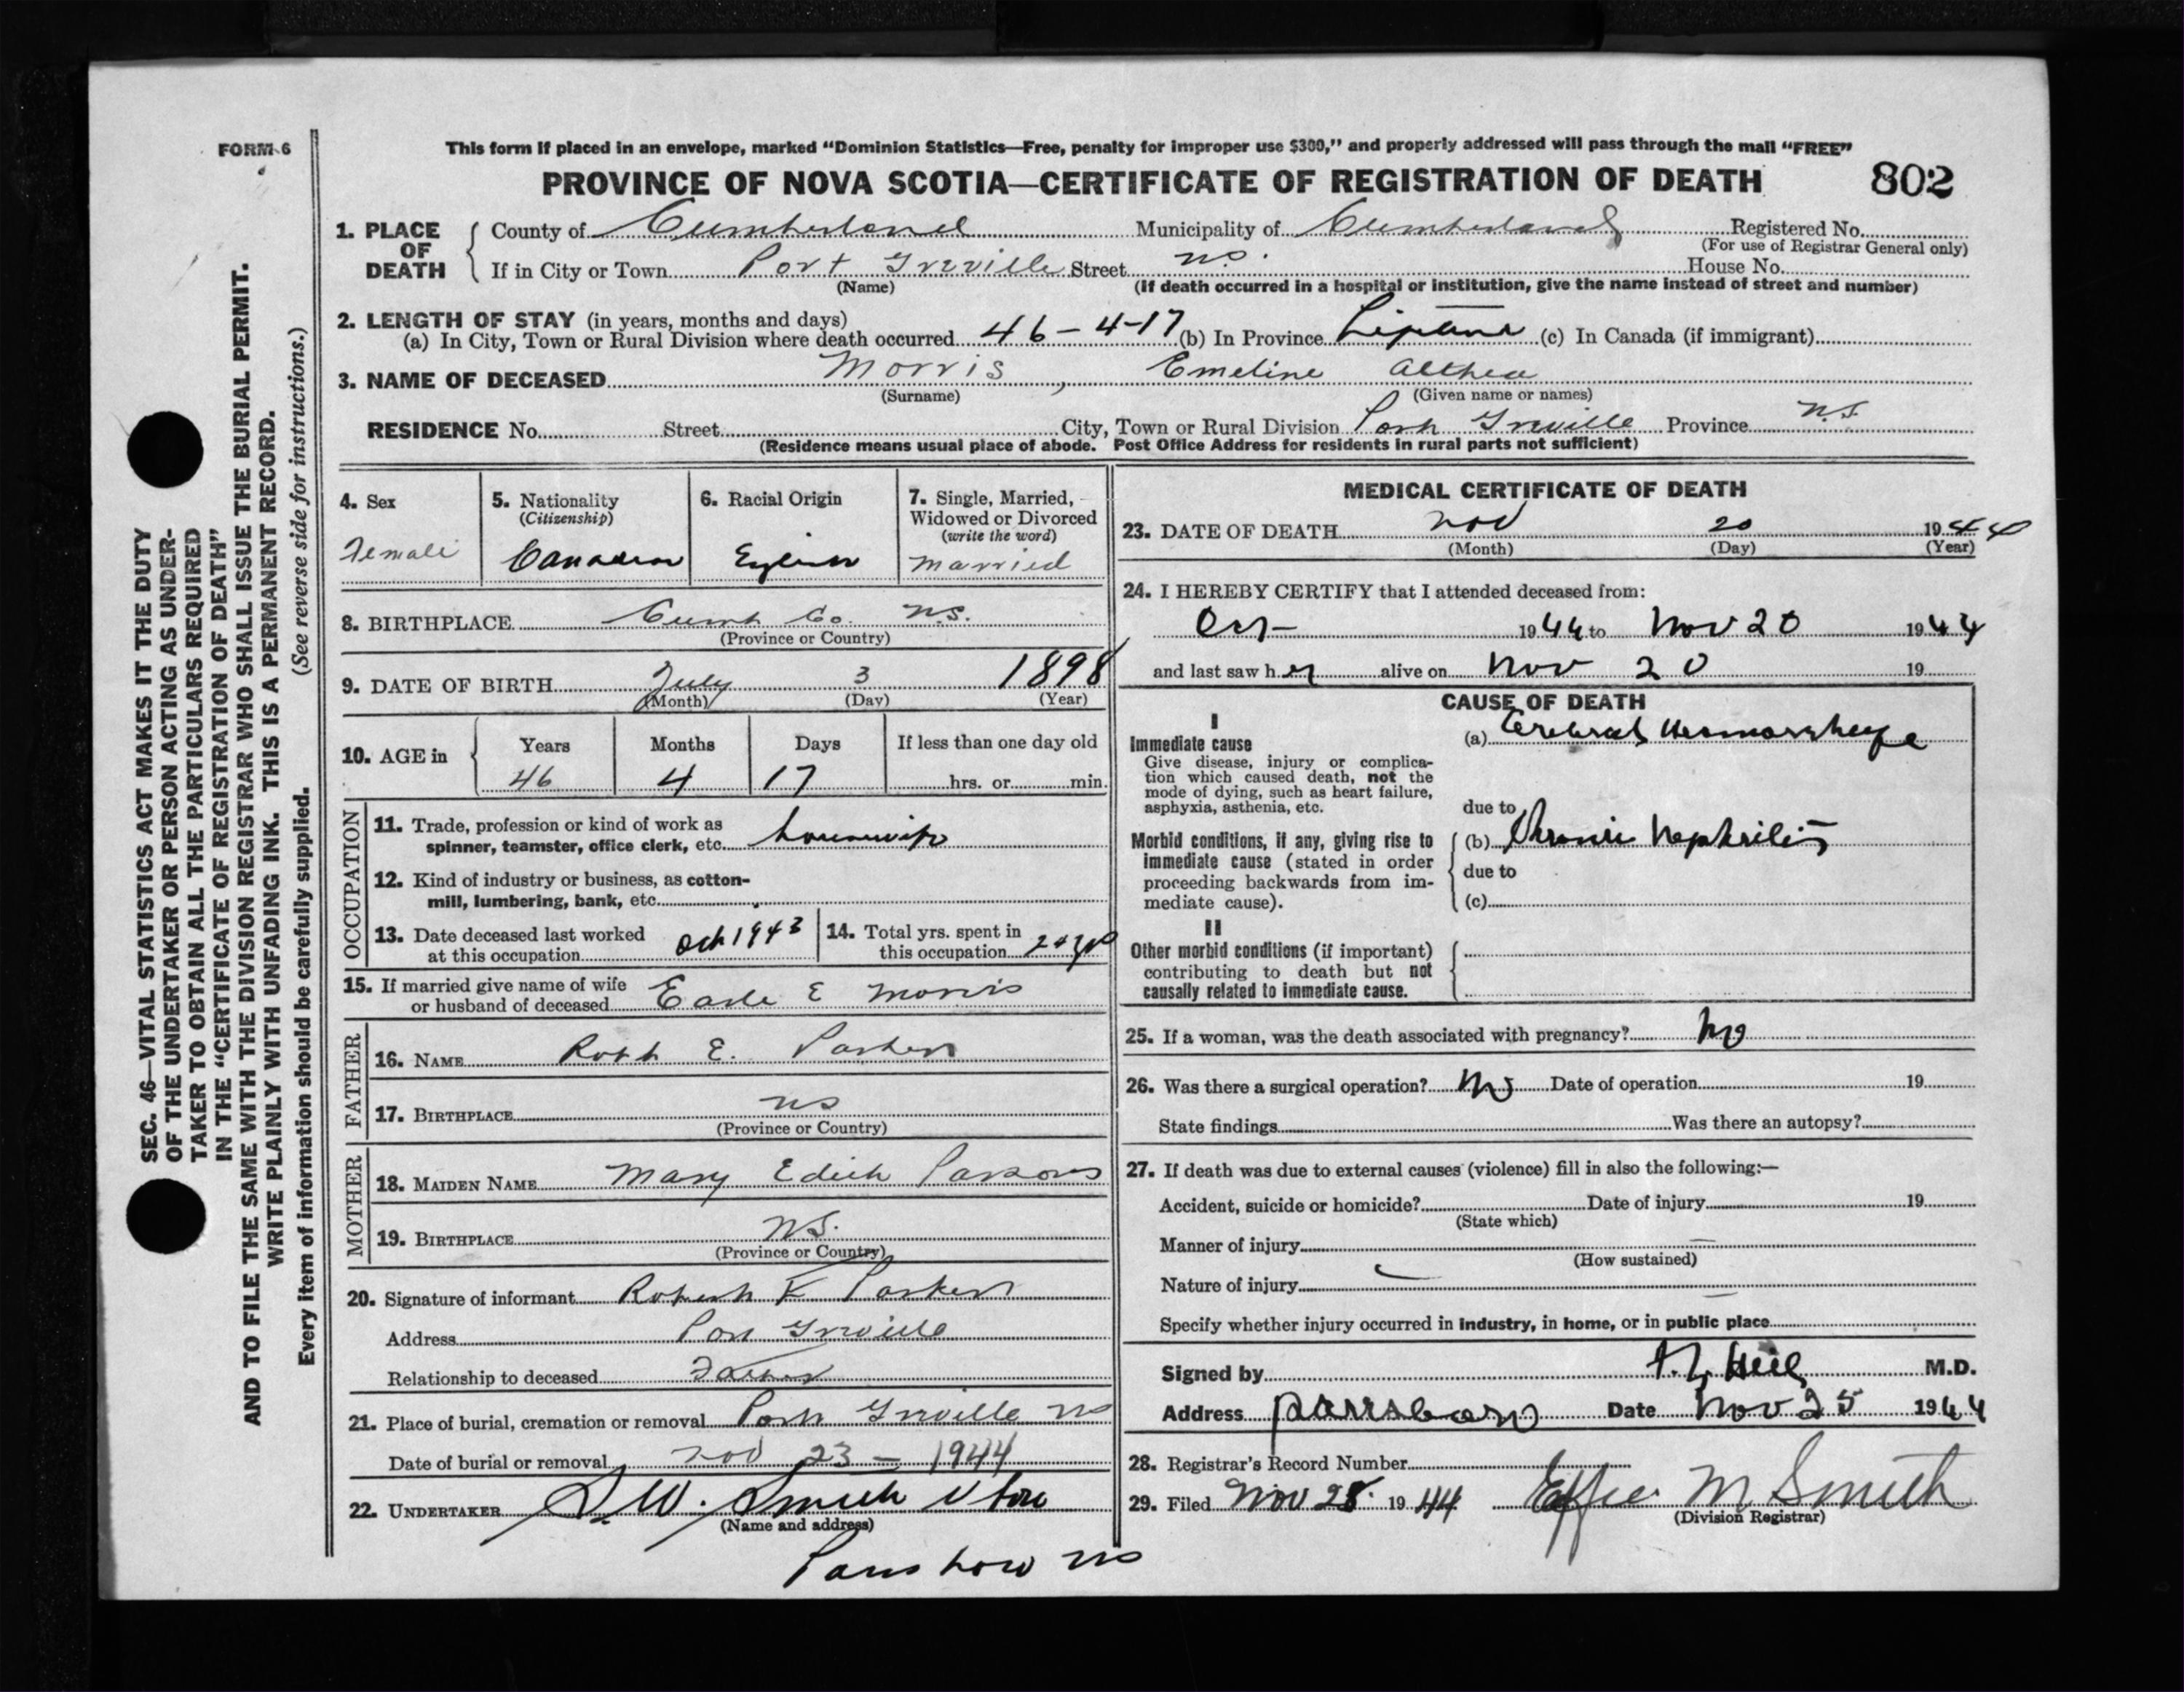 FORM 6
This form if placed in an envelope, marked “Dominion Statistics—Free, penalty for improper use $300,” and properly addressed will pass through the mail “FREE”
PROVINCE OF NOVA SCOTIA—CERTIFICATE OF REGISTRATION OF DEATH 802
1. PLACE OF DEATH
County of Cumberland Municipality of Cumberland Registered No.
(For use of Registrar General only)
If in City or Town Port Greville Street N.S. House No.
(Name) (If death occurred in a hospital or institution, give the name instead of street and number)
2. LENGTH OF STAY (in years, months and days)
(a) In City, Town or Rural Division where death occurred 46-4-17 (b) In Province Lifetime (c) In Canada (if immigrant)
3. NAME OF DECEASED Morris, Emeline Althea
(Surname) (Given name or names)
RESIDENCE No. Street City, Town or Rural Division Port Greville Province N.S.
(Residence means usual place of abode. Post Office Address for residents in rural parts not sufficient)
4. Sex
Female
5. Nationality
(Citizenship)
Canadian
6. Racial Origin
English
7. Single, Married,
Widowed or Divorced
(write the word)
Married
8. BIRTHPLACE Cumb Co. N.S.
(Province or Country)
9. DATE OF BIRTH July 3 1898
(Month) (Day) (Year)
10. AGE in Years Months Days If less than one day old
46 4 17 hrs. or min.
OCCUPATION
11. Trade, profession or kind of work as
spinner, teamster, office clerk, etc. housewife
12. Kind of industry or business, as cotton-
mill, lumbering, bank, etc.
13. Date deceased last worked
at this occupation Oct 1943
14. Total yrs. spent in
this occupation
15. If married give name of wife
or husband of deceased Earle E Morris
FATHER
16. NAME Robt E. Parker
17. BIRTHPLACE NS
(Province or Country)
MOTHER
18. MAIDEN NAME Mary Edith Parsons
19. BIRTHPLACE N.S.
(Province or Country)
20. Signature of informant Robert E Parker
Address Port Greville
Relationship to deceased Father
21. Place of burial, cremation or removal Port Greville NS
Date of burial or removal Nov 23 - 1944
22. UNDERTAKER Smith
(Name and address)
Parrsboro NS
MEDICAL CERTIFICATE OF DEATH
23. DATE OF DEATH Nov 20 1944
(Month) (Day) (Year)
24. I HEREBY CERTIFY that I attended deceased from:
Oct 1944 to Nov 20 1944
and last saw her alive on Nov 20 19
CAUSE OF DEATH
I
Immediate cause
Give disease, injury or complica-
tion which caused death, not the
mode of dying, such as heart failure,
asphyxia, asthenia, etc.
(a) Cerebral Hemorrhage
due to
Morbid conditions, if any, giving rise to
immediate cause (stated in order
proceeding backwards from im-
mediate cause).
(b) Chronic Nephritis
due to
(c)
II
Other morbid conditions (if important)
contributing to death but not
causally related to immediate cause.
25. If a woman, was the death associated with pregnancy? No
26. Was there a surgical operation? No Date of operation 19
State findings Was there an autopsy?
27. If death was due to external causes (violence) fill in also the following:—
Accident, suicide or homicide? Date of injury 19
(State which)
Manner of injury
(How sustained)
Nature of injury
Specify whether injury occurred in industry, in home, or in public place
Signed by Hill M.D.
Address Parrsboro Date Nov 25 1944
28. Registrar's Record Number
29. Filed Nov 28 1944 Effie M Smith
(Division Registrar)
SEC. 46—VITAL STATISTICS ACT MAKES IT THE DUTY
OF THE UNDERTAKER OR PERSON ACTING AS UNDER-
TAKER TO OBTAIN ALL THE PARTICULARS REQUIRED
IN THE “CERTIFICATE OF REGISTRATION OF DEATH”
AND TO FILE THE SAME WITH THE DIVISION REGISTRAR WHO SHALL ISSUE THE BURIAL PERMIT.
WRITE PLAINLY WITH UNFADING INK. THIS IS A PERMANENT RECORD.
Every item of information should be carefully supplied. (See reverse side for instructions.)